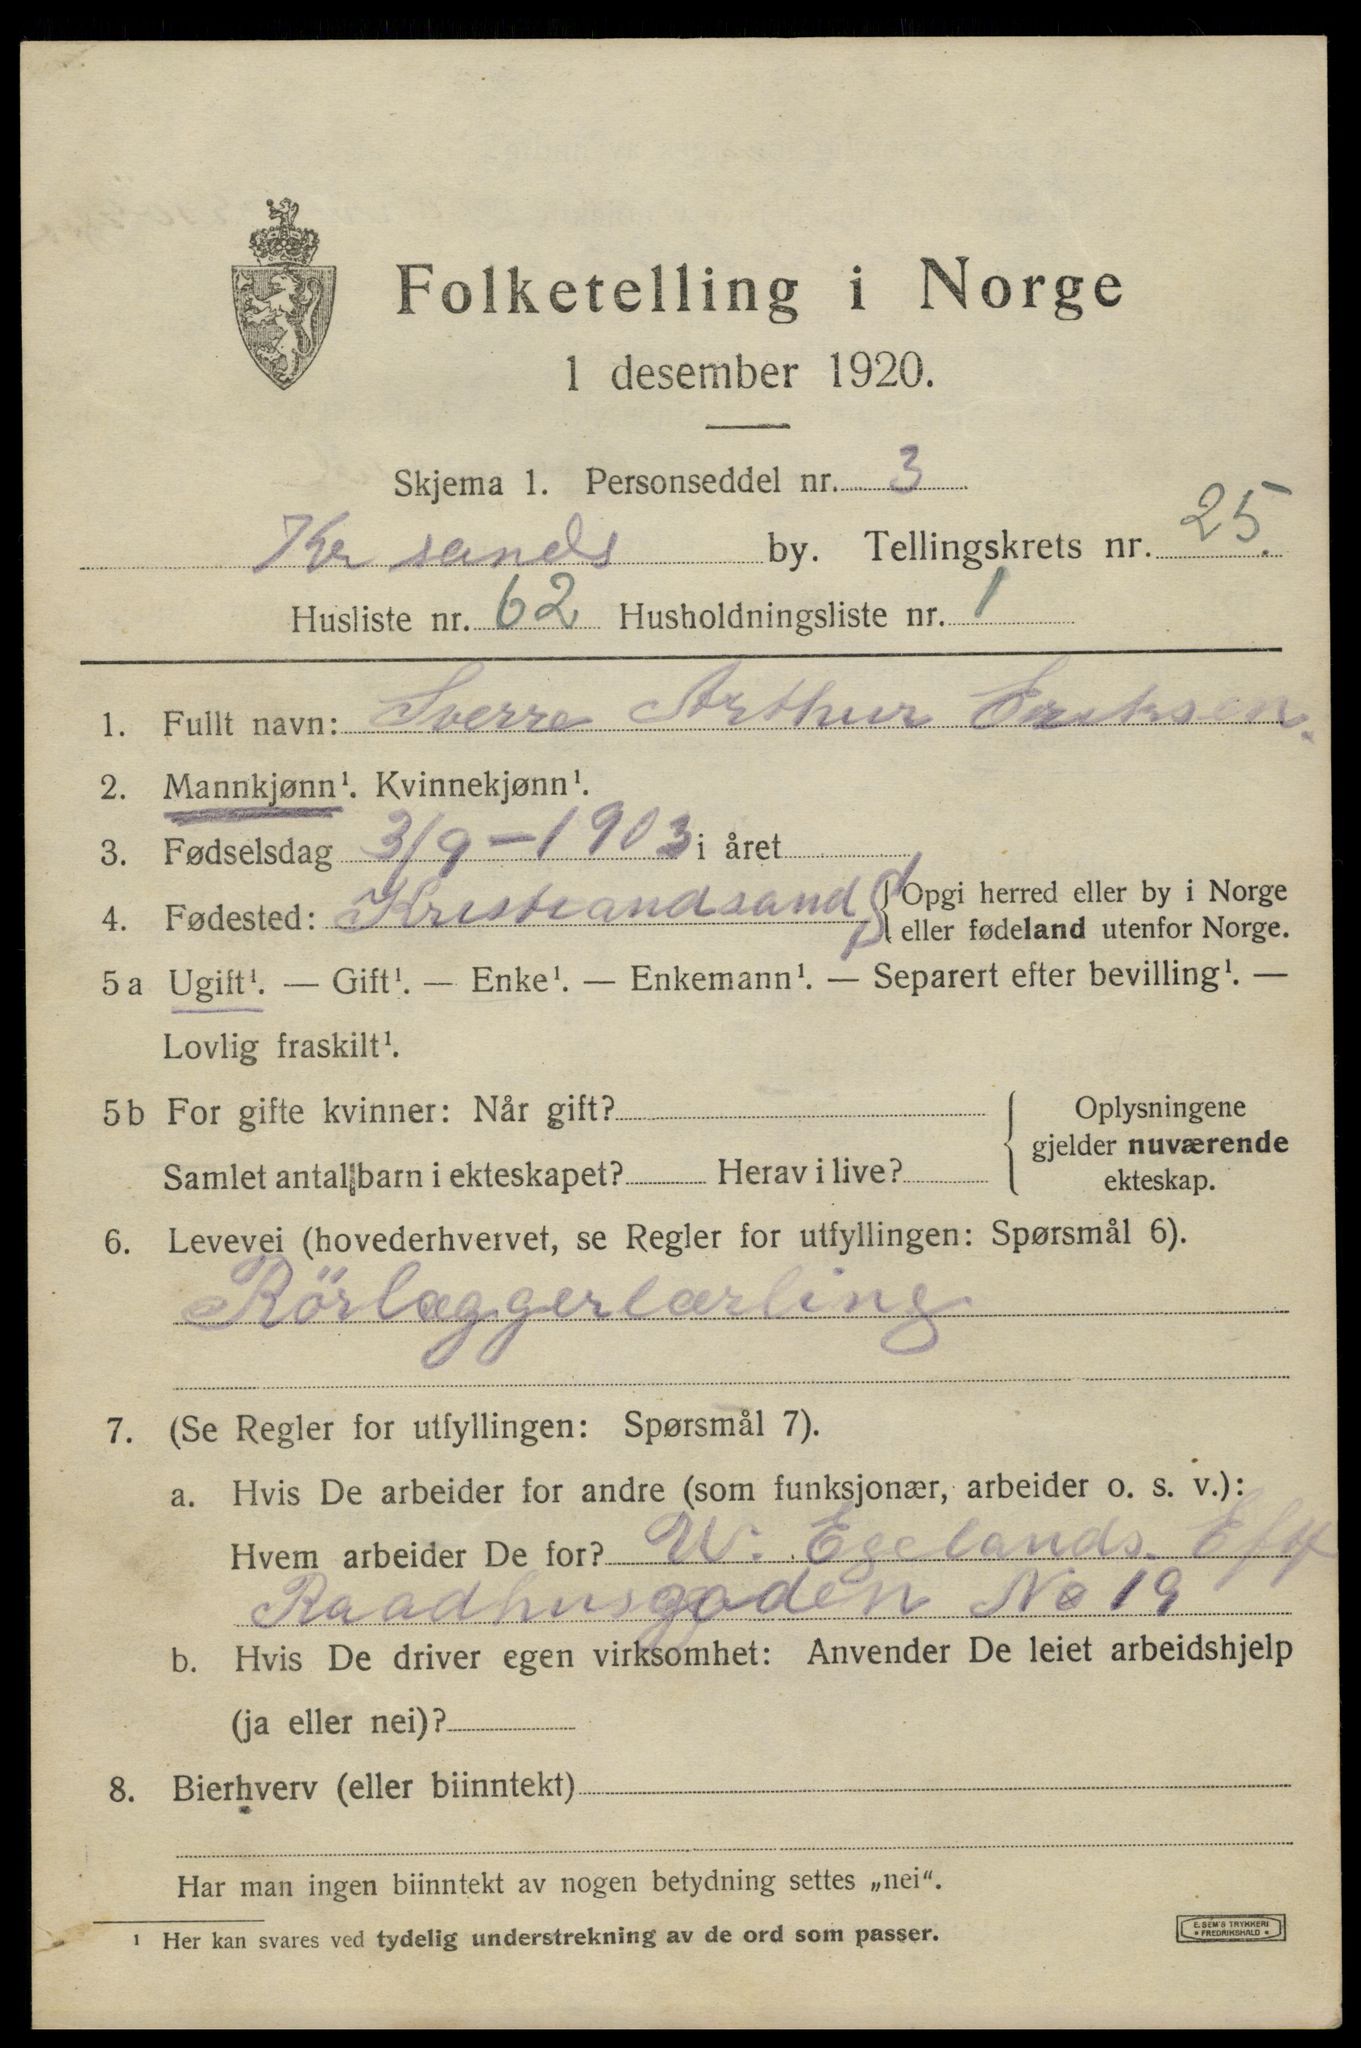 Folketelling i Norge
1 desember 1920.
Skjema 1. Personseddel nr. 3
Kr sands by. Tellingskrets nr. 25.
Husliste nr. 62 Husholdningsliste nr. 1
1. Fullt navn: Sverre Arthur Eriksen.
2. Mannkjønn¹. Kvinnekjønn¹.
3. Fødselsdag 3/9-1903 i året
4. Fødested: Kristiandsand Opgi herred eller by i Norge
eller fødeland utenfor Norge.
5a Ugift¹. — Gift¹. — Enke¹. — Enkemann¹. — Separert efter bevilling¹. —
Lovlig fraskilt¹.
5b For gifte kvinner: Når gift? Oplysningene
gjelder nuværende
Samlet antall barn i ekteskapet? Herav i live? ekteskap.
6. Levevei (hovederhvervet, se Regler for utfyllingen: Spørsmål 6).
Rörlæggerlærling
7. (Se Regler for utfyllingen: Spørsmål 7).
a. Hvis De arbeider for andre (som funksjonær, arbeider o. s. v.):
Hvem arbeider De for? W. Egelands. Eftf
Raadhusgaden No 19
b. Hvis De driver egen virksomhet: Anvender De leiet arbeidshjelp
(ja eller nei)?
8. Bierhverv (eller biinntekt)
Har man ingen biinntekt av nogen betydning settes „nei“.
¹ Her kan svares ved tydelig understrekning av de ord som passer.
E. SEM'S TRYKKERI
FREDRIKSHALD